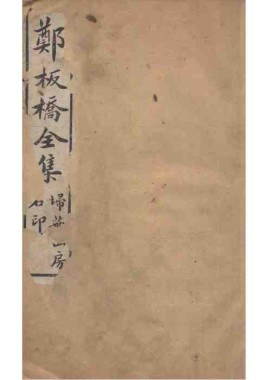 鄭板橋全集
掃葉山房
石印